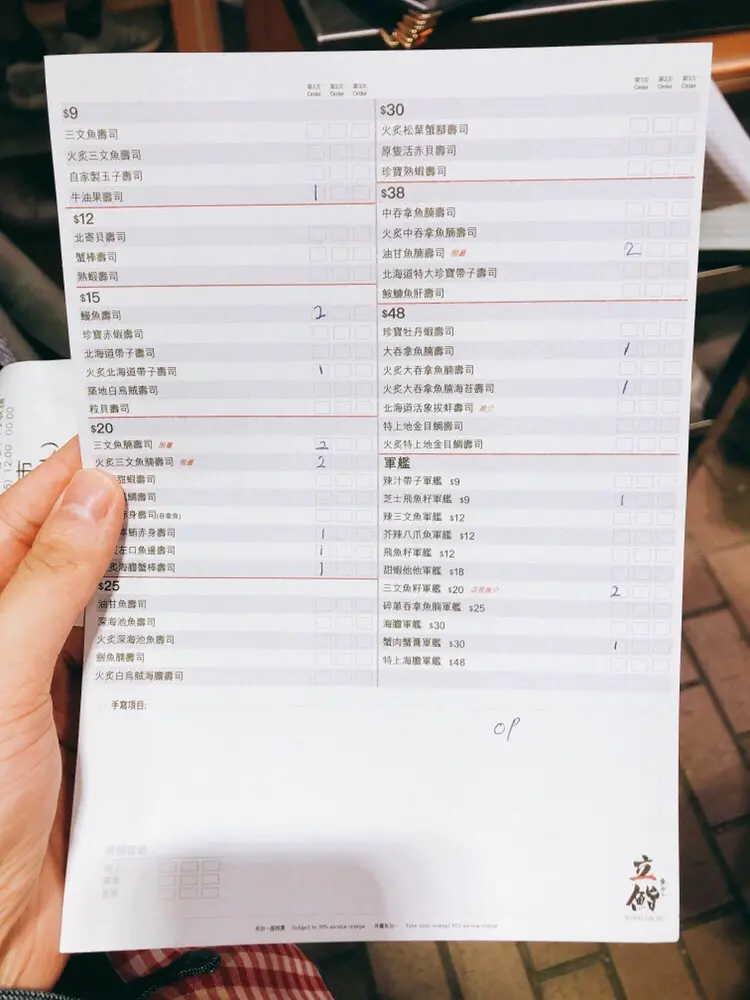 第1次 第2次 第3次
Order Order Order
$9
三文魚壽司
火炙三文魚壽司
自家製玉子壽司
牛油果壽司 1
$12
北寄貝壽司
蟹棒壽司
熟蝦壽司
$15
鰻魚壽司 2
珍寶赤蝦壽司
北海道帶子壽司
火炙北海道帶子壽司 1
築地白烏賊壽司
粒貝壽司
$20
三文魚腩壽司 限量 2
火炙三文魚腩壽司 限量 2
甜蝦壽司
鯛壽司
赤身壽司(吞拿魚)
赤身壽司 1
左口魚邊壽司 1
炙海膽蟹棒壽司 1
$25
油甘魚壽司
深海池魚壽司
火炙深海池魚壽司
劍魚腩壽司
火炙白烏賊海膽壽司
第1次 第2次 第3次
Order Order Order
$30
火炙松葉蟹腳壽司
原隻活赤貝壽司
珍寶熟蝦壽司
$38
中吞拿魚腩壽司
火炙中吞拿魚腩壽司
油甘魚腩壽司 限量 2
北海道特大珍寶帶子壽司
鮟鱇魚肝壽司
$48
珍寶牡丹蝦壽司
大吞拿魚腩壽司 1
火炙大吞拿魚腩壽司
火炙大吞拿魚腩海苔壽司 1
北海道活象拔蚌壽司 推介
特上地金目鯛壽司
火炙特上地金目鯛壽司
軍艦
辣汁帶子軍艦 $9
芝士飛魚籽軍艦 $9 1
辣三文魚軍艦 $12
芥辣八爪魚軍艦 $12
飛魚籽軍艦 $12
甜蝦他他軍艦 $18
三文魚籽軍艦 $20 店長推介 2
碎蔥吞拿魚腩軍艦 $25
海膽軍艦 $30
蟹肉蟹膏軍艦 $30 1
特上海膽軍艦 $48
手寫項目:
OP
立鮨
另加一服務費 Subject to 10% service charge